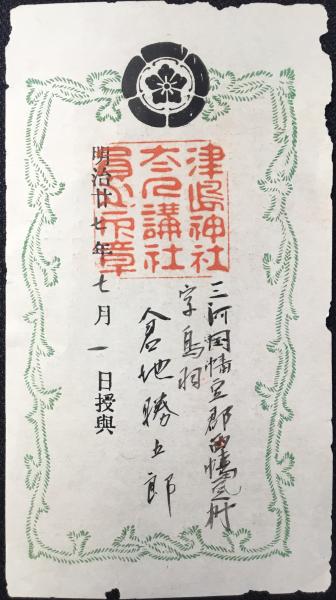 津島神社
太々講社
員之印章
三河国幡豆郡西幡豆村
字鳥羽
倉地勝五郎
明治廿七年七月一日授與